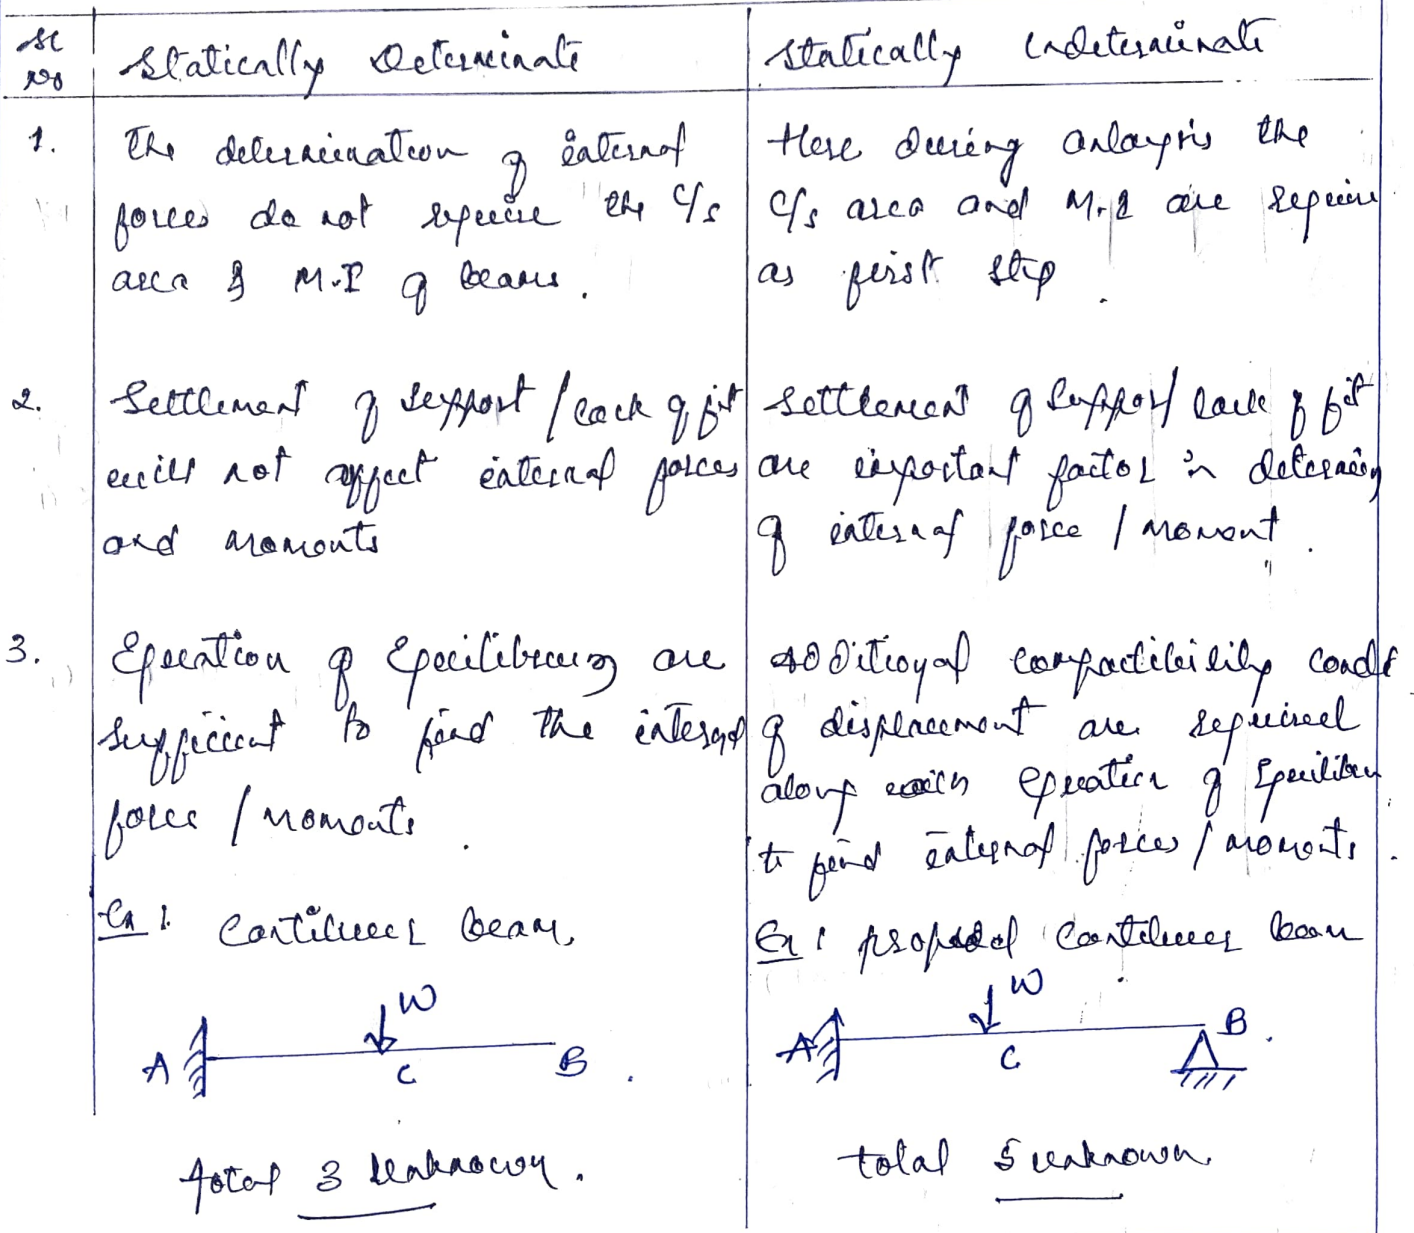 Sl No
Statically Determinate
Statically Indeterminate
1.
The determination of internal
forces do not require the C/s
area & M.I of beams.
Here during anlaysis the
C/s area and M.I are require
as first step.
2.
Settlement of support / lack of fit
will not affect internal forces
and moments
Settlement of support / lack of fit
are important factor in determing
of internal force / moment.
3.
Equation of Equilibrium are
sufficient to find the internal
force / moments.
Additional compactibility condt
of displacement are required
along with equation of Equilibru
to find internal forces / moments.
Ex: Cantilever beam,
A W C B.
total 3 unknown.
Ex: propped cantilever beam
A W C B.
total 5 unknown